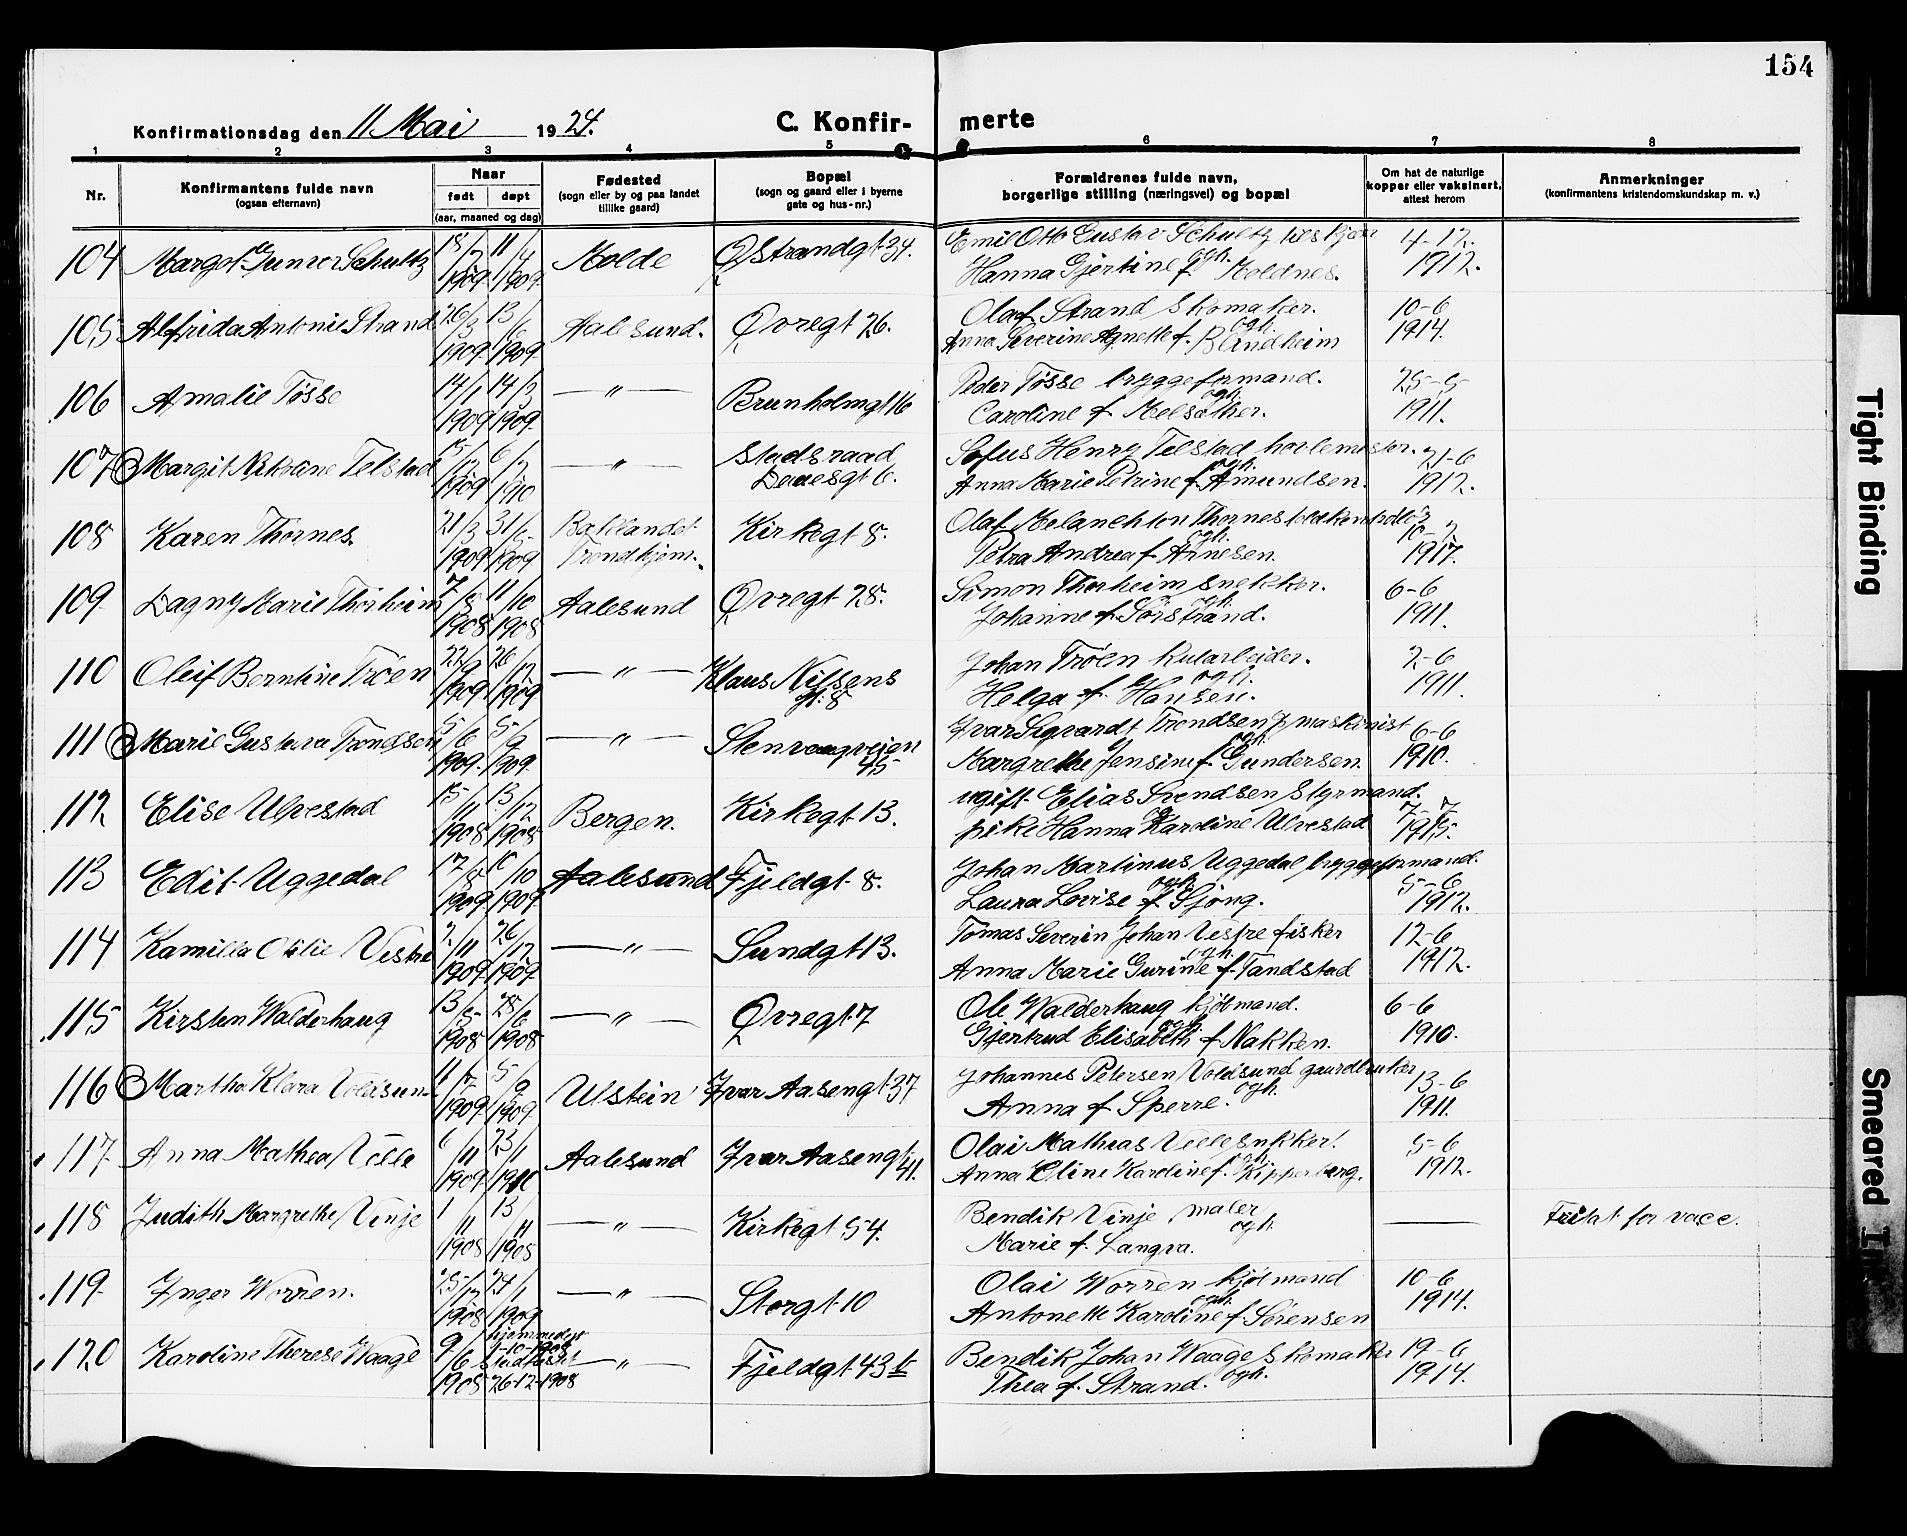 154
Konfirmationsdag den 11 Mai 1924.
C. Konfir- merte
1 2 3 4 5 6 7 8
Nr.
Konfirmantens fulde navn
(ogsaa efternavn)
Naar
født døpt
(aar, maaned og dag)
Fødested
(sogn eller by og paa landet
tillike gaard)
Bopæl
(sogn og gaard eller i byerne
gate og hus-nr.)
Forældrenes fulde navn,
borgerlige stilling (næringsvei) og bopæl
Om hat de naturlige
kopper eller vaksinert,
attest herom
Anmerkninger
(konfirmantens kristendomskundskap m. v.)
104 Margot Gunvor Schultz 18/2 1909 11/4 1909 Molde Ø Strandgt 34. Emil Otto Gustav Schultz 4-12.
Hanna Gjertine f. Moldnes. 1912.
105 Alfrida Antonie Strand 26/3 1909 13/6 1909 Aalesund. Øvregt 26. Olaf Strand skomaker. 10-6
ogh.
Anna Severine Agnette f. Blindheim 1914.
106 Amalie Tøsse 14/1 1909 14/3 1909 —"— Brunholmgt 16 Peder Tøsse bryggeformand. 25-5
ogh.
Caroline f. Melsæther. 1911.
107 Margit Telstad 1909 6/2 1910 —"— Stadsraad Sofus Henry Telstad 21-6
Davesgt 6. Anna Marie Petrine f. Amundsen. 1912.
108 Karen Thornes. 21/3 1909 31/5 1909 Baklandet Kirkegt 8. Olaf Melanchton Thornes
Trondhjem. Petra Andrea f. Arnesen. 1917.
109 Dagny Marie Thorheim 7/8 1908 11/10 1908 Aalesund Øvregt 28. Simon Thorheim snekker. 6-6
ogh.
Johanne f. Sørstrand. 1911.
110 Oleif Berntine Trøen 22/9 1909 26/12 1909 —"— Klaus Nilsens Johan Trøen kularbeider. 2-6
gt. 8 ogh.
Helga f. Hansen. 1911.
111 Marie Gustava Trondsen 5/6 1909. 5/9 1909. —"— Stenvaagveien Ivar Sigvardt Trondsen maskinist 6-6
45 Margrethe Jensine f. Gundersen. 1910.
112 Elise Ulvestad 15/11 1908 13/12 1908 Bergen. Kirkegt 13. ugift Elias Svendsen Styrmand. 7-7
pike Hanna Karoline Ulvestad 1915.
113 Edit Uggedal 17/8 1909 10/10 1909 Aalesund Fjeldgt. 8. Johan Martinus Uggedal bryggeformand.
ogh. 5-6
Laura Lovise f. Sjong. 1912.
114 Kamilla Otilie Vestre 2/11 1909 26/12 1909 —"— Sundgt 13. Tomas Severin Johan Vestre fisker 12-6
ogh.
Anna Marie Gurine f. Tandstad 1912.
115 Kirsten Walderhaug 13/5 1908 28/6 1908 —"— Øvregt 7 Ole Walderhaug kjøbmand. 6-6
ogh.
Gjertrud Elisabeth f. Nakken. 1910.
116 Martha Klara Voldsun- 11/7 1909 5/9 1909. Ulstein Ivar Aasengt 37 Johannes Petersen Voldsund gaardbruker 13-6
Anna f. Sperre. ogh. 1911.
117 Anna Mathea Velle 6/11 1909 23/1 1910 Aalesund Ivar Aasengt 41. Olai Mathias Velle snkker! 5-6
Anna Eline Karoline f. Kipperberg. 1912.
118 Judith Margrethe Vinje 1/11 1908 13/11 1908 —"— Kirkegt. 54. Bendik Vinje, maler —— Fritat for vacc.
ogh.
Marie f. Langva.
119 Inger Worren. 25/12 1908 24/1 1909 —"— Storgt 10 Olai Worren kjøbmand 10-6
ogh.
Antonette Karoline f. Sørensen 1914.
120 Karoline Therese Waage 9/6 1908 hjemmedøpt
1-10-1908
stadfæstet
26-12-1908 —"— Fjeldgt 43 b Bendik Johan Waage Skomaker 19-6
Thea f. Strand. ogh. 1914.
Tight Binding
Smeared In